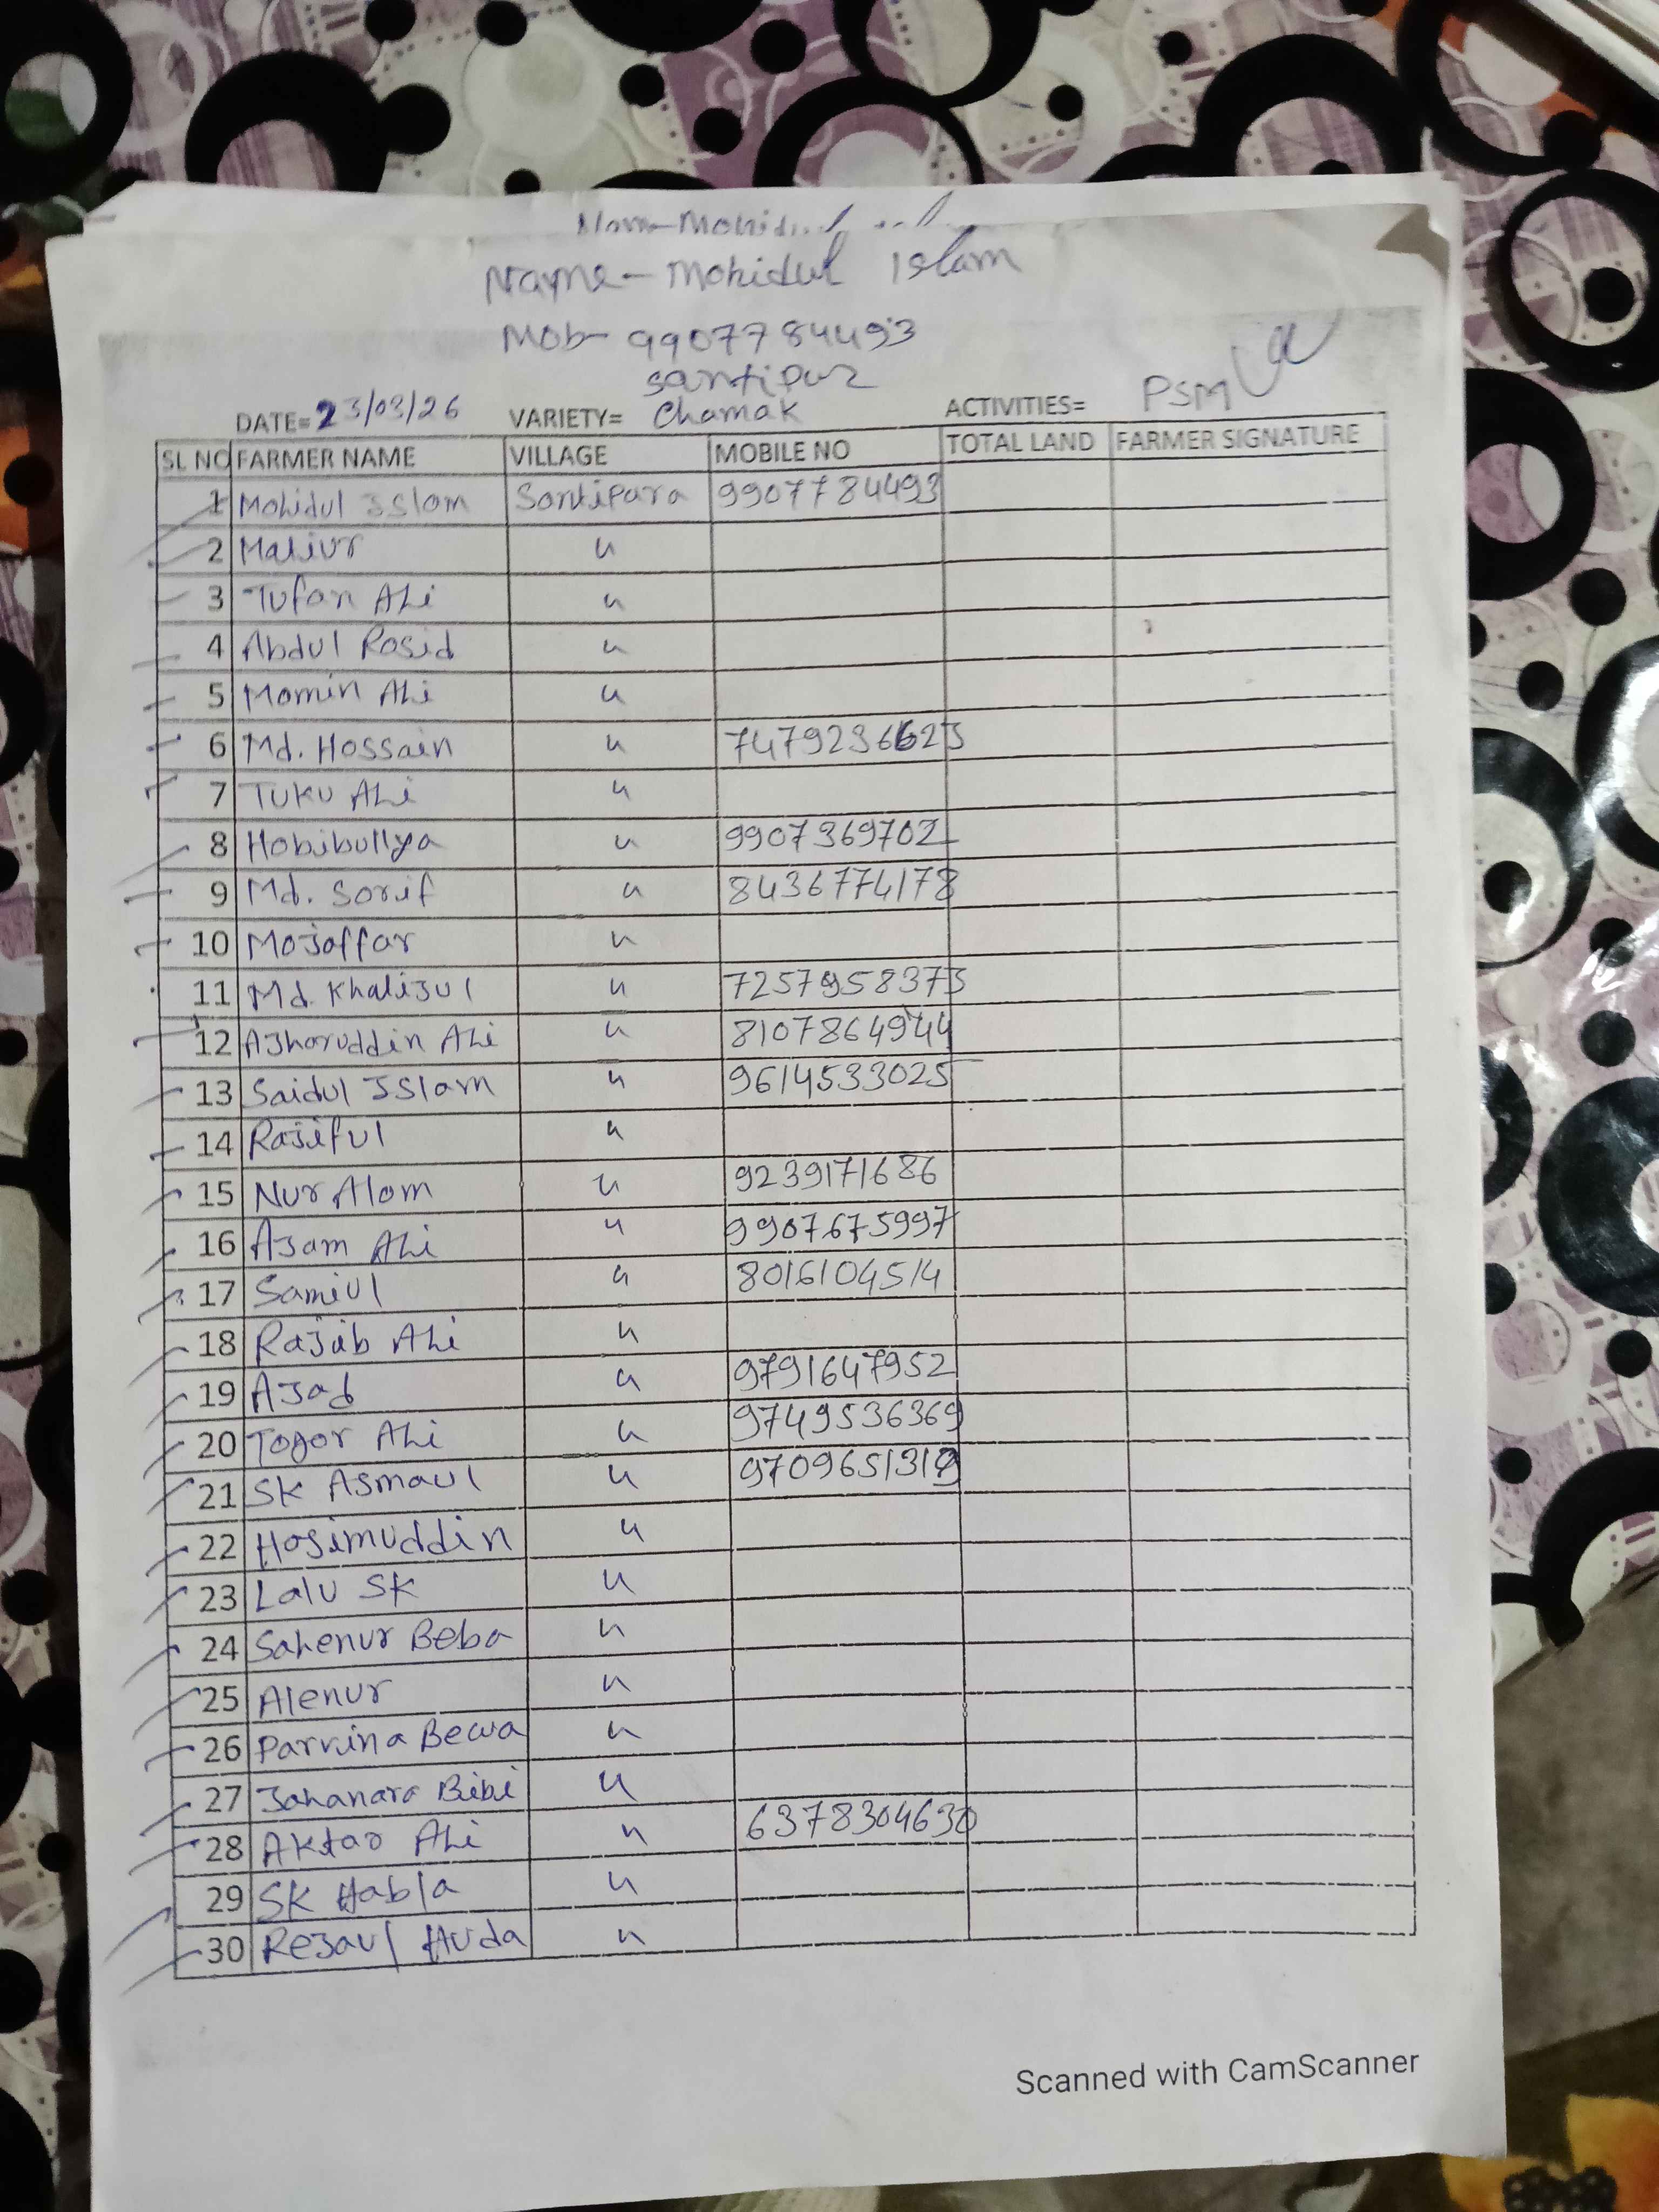 Name-Mohidul Islam
Mob- 9907784493
santipur
DATE= 23/03/26 VARIETY= Chamak ACTIVITIES= PSM
SL NO FARMER NAME VILLAGE MOBILE NO TOTAL LAND FARMER SIGNATURE
1 Mohidul Islam Santipara 9907784493
2 Maliur "
3 Tufan Ali "
4 Abdul Rosid "
5 Momin Ali "
6 Md. Hossain " 7479236623
7 Tuku Ali "
8 Hobibullya " 9907369702
9 Md. Sorif " 8436774178
10 Mojaffar "
11 Md. Khalijul " 7257958373
12 Ajharuddin Ali " 8107864944
13 Saidul Islam " 9614533025
14 Rajiful "
15 Nur Alom " 9239171686
16 Ajam Ali " 9907675997
17 Samiul " 8016104514
18 Rajab Ali "
19 Ajad " 9791647952
20 Togor Ali " 9749536369
21 SK Asmaul " 9709651319
22 Hasimuddin "
23 Lalu SK "
24 Sahenur Beba "
25 Alenur "
26 Parvina Bewa "
27 Jahanara Bibi "
28 Aktar Ali " 6378304630
29 SK Habla "
30 Rejaul Huda "
Scanned with CamScanner